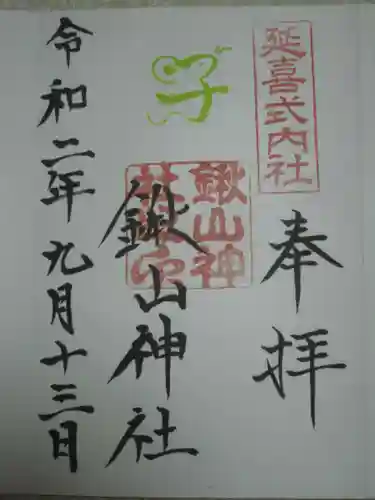 延喜式内社
奉拝
鍬山神社
鍬山神
子
令和二年九月十三日